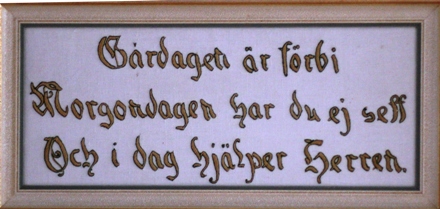 Gårdagen är förbi
Morgondagen har du ej sett
Och i dag hjälper Herren.